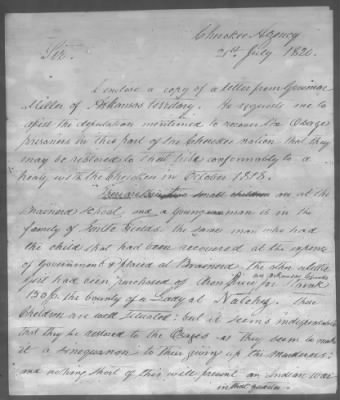 Cherokee Agency
21st July 1820.
Sir.
I enclose a copy of a letter from Governor
Miller of Arkansas Territory. He requests me to
assist the deputation mentioned to recover the Osages
prisoners in this part of the Cherokee nation that they
may be restored to that tribe conformably to a
treaty with the Cherokees in October 1818.
small children are at the
Brainerd School, and a young man is in the
family of Fields the same man who had
the child that had been recovered at the expense
of Government & placed at Brainerd. the other
had been purchased of Aron Price for I think
$ by the bounty of a Lady at Natchez. These
Children are well situated: but it seems indispensable
that they be restored to the Osages as they seem to make
it a sinequanon to their giving up the murderers:
and nothing short of this will prevent an Indian War
in that quarter.